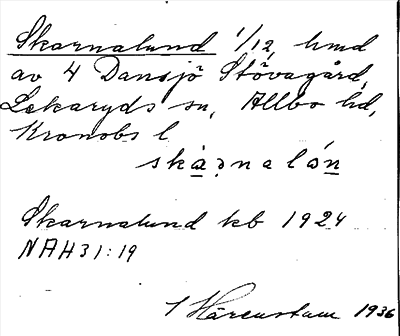 Skarnalund 1/12, hmd
av 4 Dansjö Stövagård,
Lekaryds sn, Allbo hd,
Kronobs l
skạṇnalón
Skarnalund kb 1924
NAH31:19
Härenstam 1936